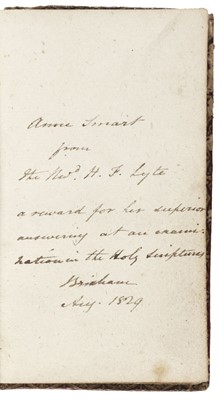 Anne Smart
from
the Revd. H. F. Lyte
a reward for her superior
answering at an exami-
nation in the Holy Scriptures.
Brixham
Aug. 1829